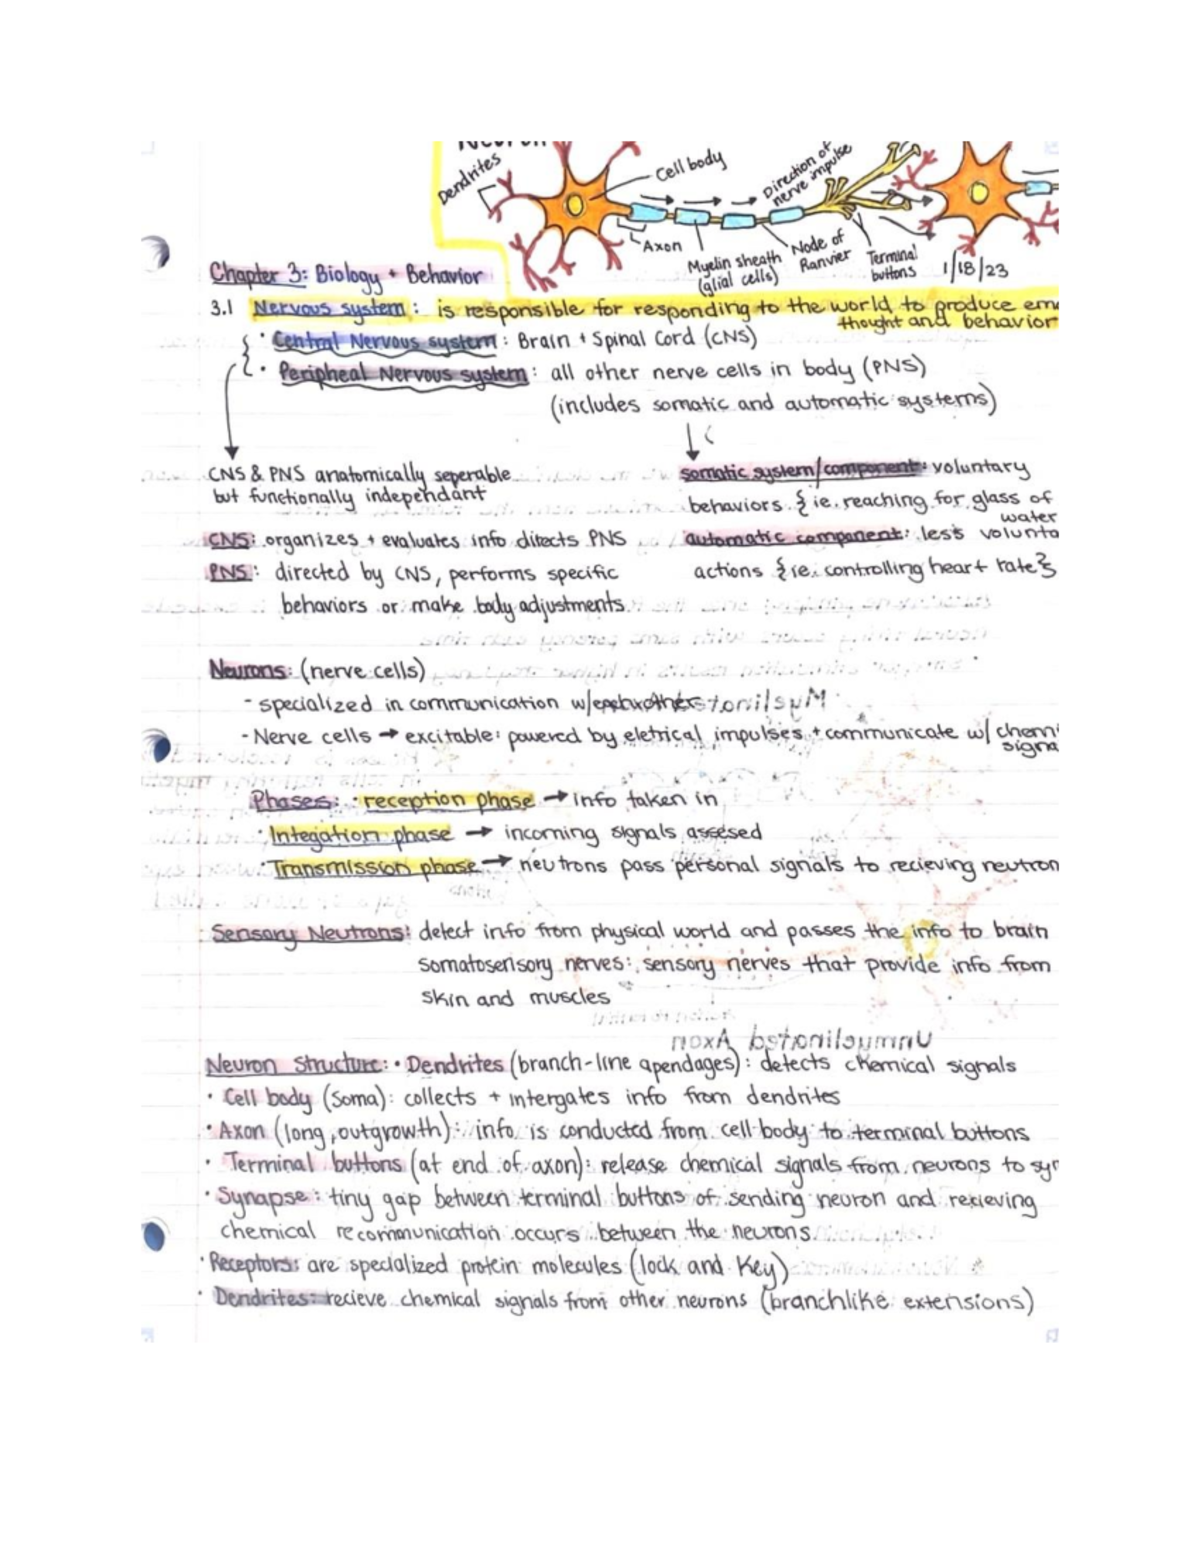 Neuron
Dendrites
Cell body
Direction of
nerve impulse
Axon
Myelin sheath
(glial cells)
Node of
Ranvier
Terminal
buttons
1/18/23
Chapter 3: Biology + Behavior
3.1 Nervous system: is responsible for responding to the world to produce em
thought and behavior
· Central Nervous system: Brain + Spinal Cord (CNS)
· Peripheal Nervous system: all other nerve cells in body (PNS)
(includes somatic and automatic systems)
CNS & PNS anatomically seperable
but functionally independant
somatic system/component: voluntary
behaviors { ie. reaching for glass of
water
CNS: organizes + evaluates info ditects PNS
automatic component: less volunta
PNS: directed by CNS, performs specific
actions { ie. controlling heart rate }
behaviors or make body adjustments
Neurons: (nerve cells)
- specialized in communication w/
Myelinat
- Nerve cells → excitable: powered by eletrical impulses + communicate w/ chemi
signa
Phases: · reception phase → info taken in
· Integation phase → incoming signals assesed
· Transmission phase → neutrons pass personal signals to recieving neutron
Sensory Neutrons: detect info from physical world and passes the info to brain
somatosensory nerves: sensory nerves that provide info from
skin and muscles
Unmyelinated Axon
Neuron Structure: · Dendrites (branch-line apendages): detects chemical signals
· Cell body (soma): collects + intergates info from dendrites
· Axon (long, outgrowth): info is conducted from cell body to terminal buttons
· Terminal buttons (at end of axon): release chemical signals from neurons to syn
· Synapse: tiny gap between terminal buttons of sending neuron and recieving
chemical recommunication occurs between the neurons
· Receptors: are specialized protein molecules (lock and key)
· Dendrites: recieve chemical signals from other neurons (branchlike extensions)